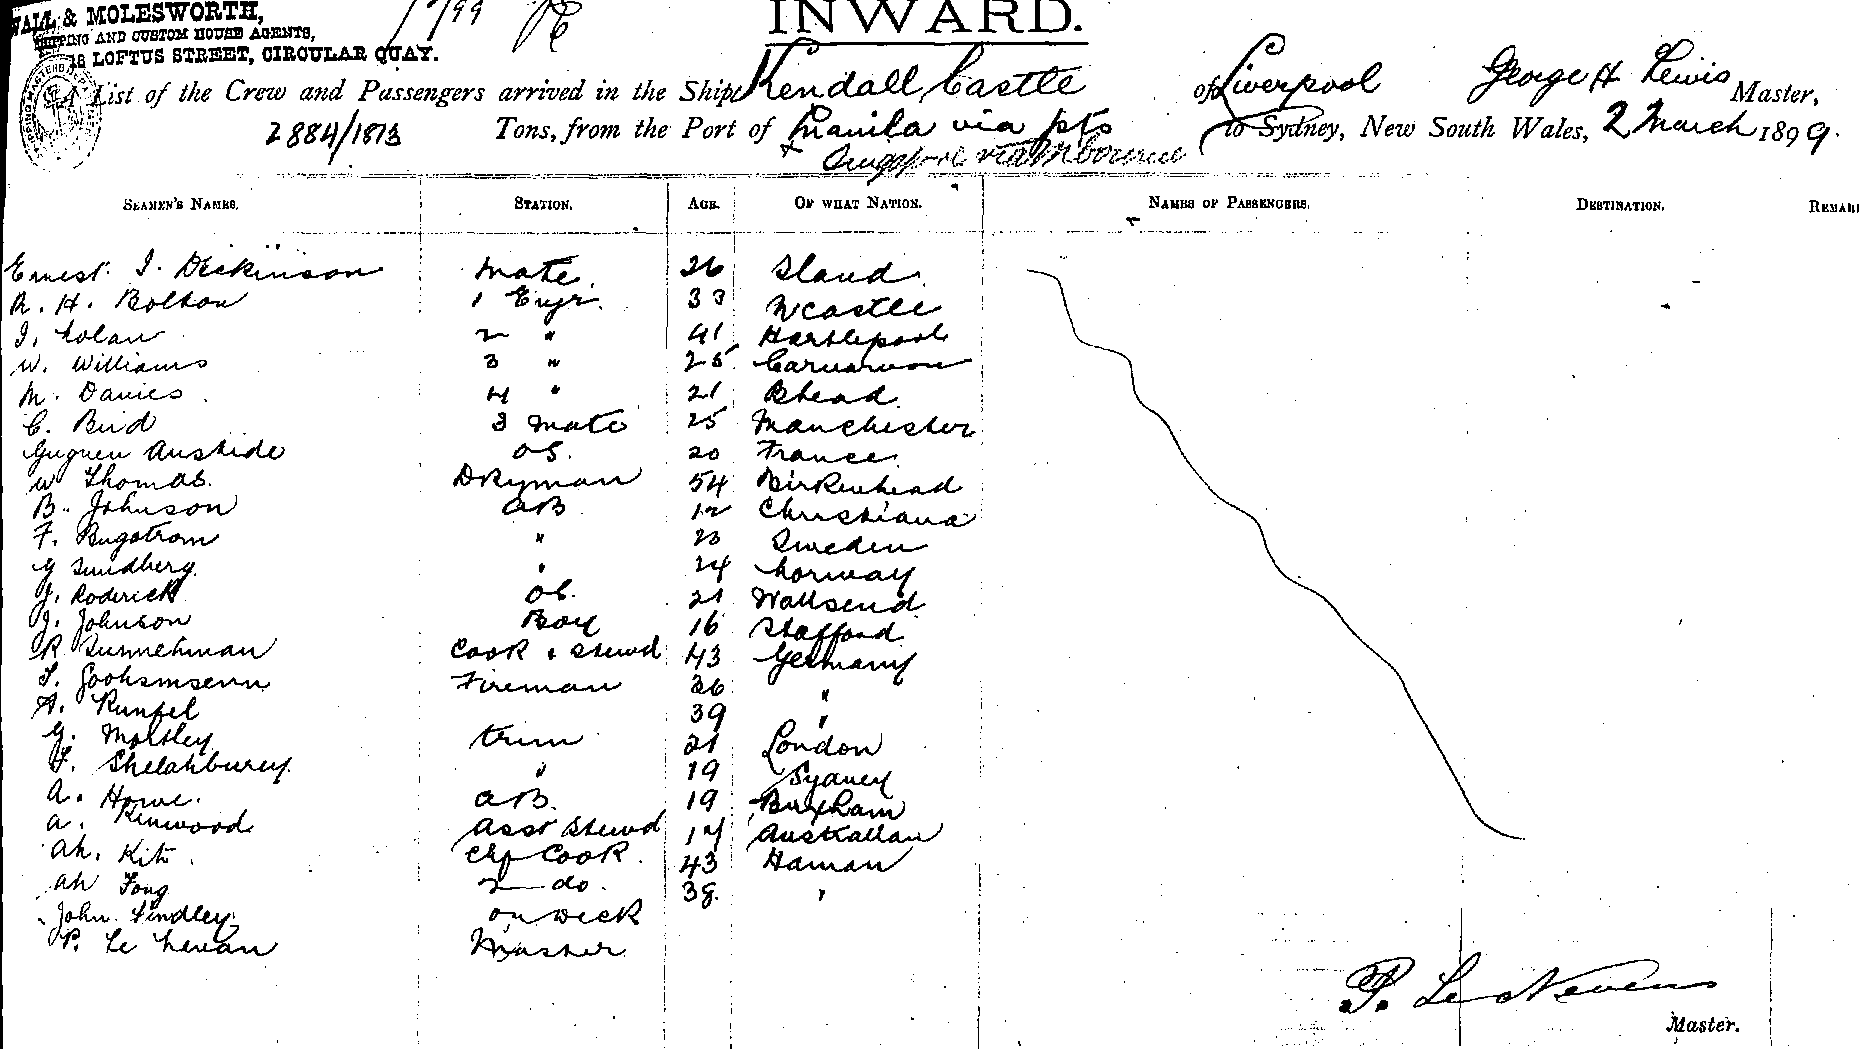 WALL & MOLESWORTH,
SHIPPING AND CUSTOM HOUSE AGENTS,
18 LOFTUS STREET, CIRCULAR QUAY.
INWARD.
A List of the Crew and Passengers arrived in the Ship Kendall Castle of Liverpool George H Lewis Master,
2884/1873 Tons, from the Port of Manila via pts to Sydney, New South Wales, 2 March 1899.
via Mbourne
SEAMEN'S NAMES. STATION. AGE. OF WHAT NATION. NAMES OF PASSENGERS. DESTINATION. REMAR
Ernest J. Dickinson Mate 26 Sland
R. H. Bolton 1 Engr. 33 Ncastle
J. Nolan 2 " 41 Hartlepool
W. Williams 3 " 25 Carnarvon
M. Davies 4 " 21 Bhead
C. Bird 3 Mate 25 Manchester
OS. 20 France
W Thomas. Dkyman 54 Birkenhead
B. Johnson AB Christiana
F. Bugstrom " 23 Sweden
G Sundberg " 24 Norway
J. Roderick OS. 21 Wallsend
J. Johnson Boy 16 Stafford
R Cook & Stewd 43 Germany
Fireman 36 "
A. 39 "
G. Mobley trim 21 London
" 19 Sydney
A. Howe. AB. 19 Brixham
A. Kinwood Asst Stewd 17 Australian
Ah. Kit Chf Cook 43 Hainan
Ah Fong 2 do. 38. "
John Findley on deck
P. Le Nevan Master
P. Le Nevens
Master.